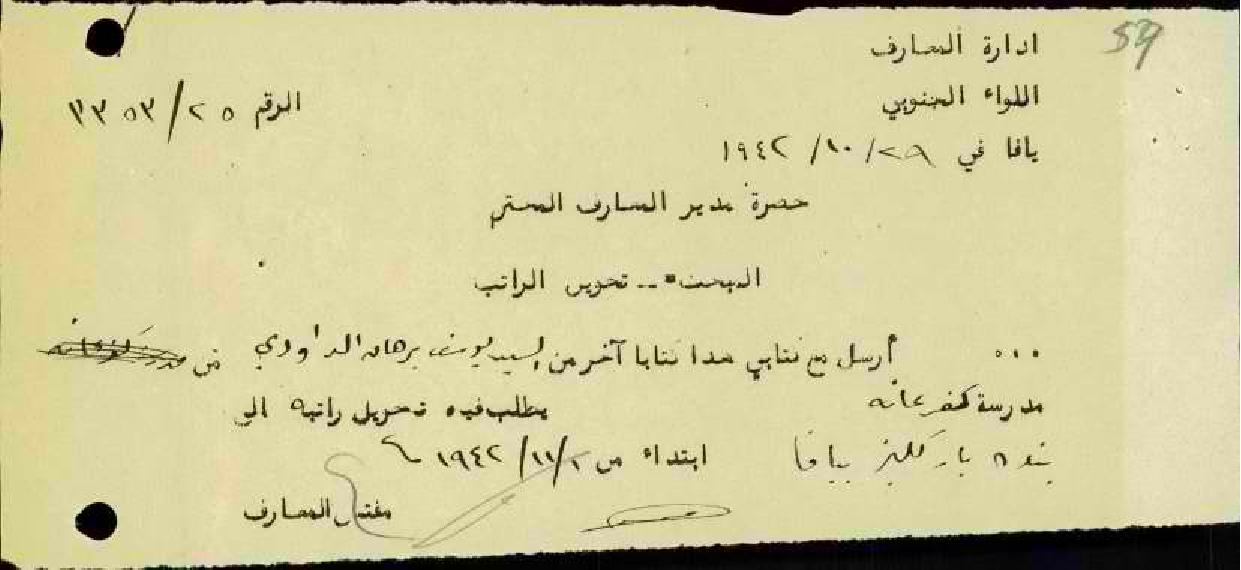 59
ادارة المعارف
اللواء الجنوبي
الرقم ٢٥/٣٥٣
يافا في ٢٩/١٠/١٩٤٢
حضرة مدير المعارف المحترم
المبحث :- تحويل الراتب
... أرسل مع كتابي هذا كتابا آخر من السيد يوسف برهان الداودي من
مدرسة كفرعانه يطلب فيه تحويل راتبه الى
بنك باركليز بيافا ابتداء من ١/١١/١٩٤٢
مفتش المعارف